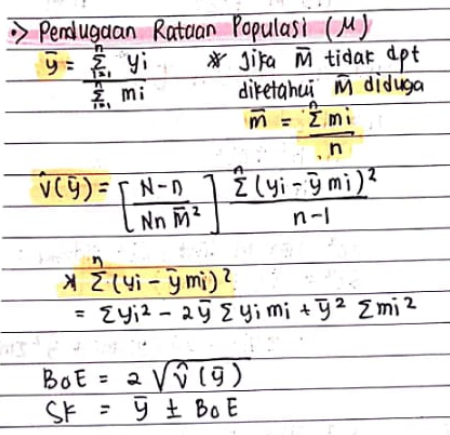 •> Pendugaan Rataan Populasi (μ)
ȳ = Σⁿᵢ₌₁ yi / Σⁿᵢ₌₁ mi
* Jika M̄ tidak dpt
diketahui M̄ diduga
m̄ = Σⁿ mi / n
V̂(ȳ) = [N-n / Nn M̄²] Σⁿ (yi - ȳ mi)² / n-1
* Σⁿ (yi - ȳ mi)²
= Σyi² - 2ȳ Σ yi mi + ȳ² Σ mi²
BoE = 2 √V̂(ȳ)
SK = ȳ ± BoE